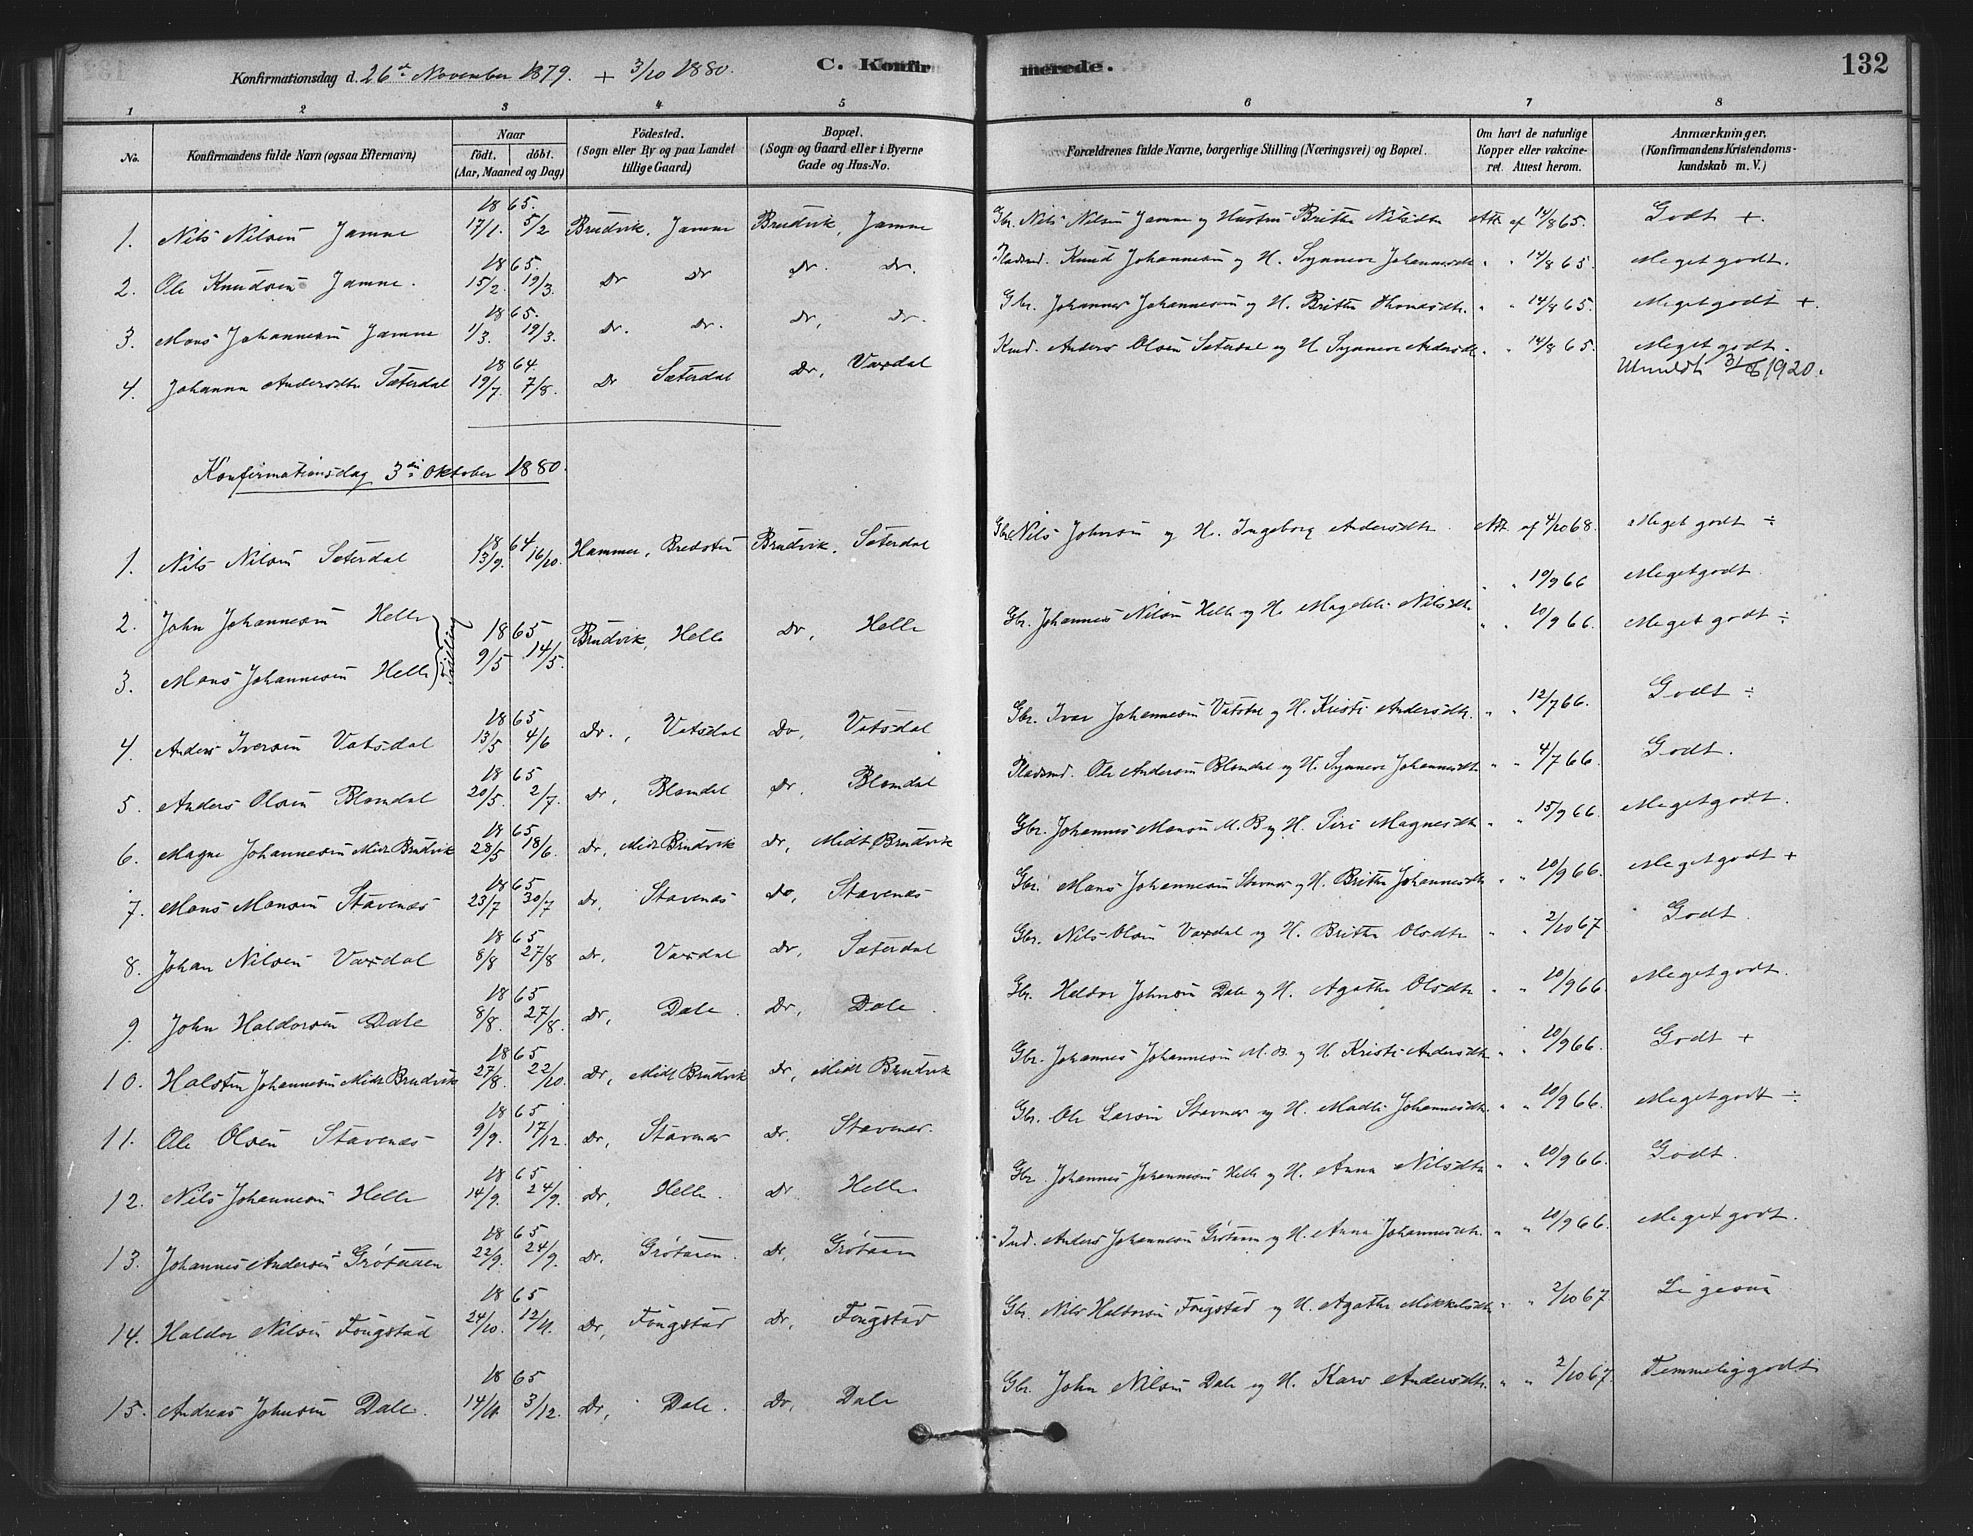 Konfirmationsdag d. 26de November 1879. + 3/10 1880.
C. Konfirmerede.
132
1 2 3 4 5 6 7 8
No.
Konfirmandens fulde Navn (ogsaa Efternavn)
Naar
födt. döbt.
(Aar, Maaned og Dag)
Födested.
(Sogn eller By og paa Landet
tillige Gaard)
Bopæl.
(Sogn og Gaard eller i Byerne
Gade og Hus-No.
Forældrenes fulde Navne, borgerlige Stilling (Næringsvei) og Bopæl.
Om havt de naturlige
Kopper eller vakcine-
ret. Attest herom.
Anmærkninger.
(Konfirmandens Kristendoms-
kundskab m. V.)
1865.
1. Nils Nilsen Jamne 17/1. 5/2 Brudvik, Jamne Brudvik, Jamne Gbr. Nils Nilsen Jamne og Hustru Britha Nilsdtr Att. af 14/8 65. Godt +.
1865.
2. Ole Knudsen Jamne. 15/2. 19/3. Do Do Do. Do. Pladsmd. Knud Johannesen og H. Synneve Johannesdtr " " 14/8 65. Meget godt.
1865.
3. Mons Johannesen Jamne 1/3. 19/3. Do. Do. Do, Do. Gbr. Johannes Johannesen og H. Britha Thomasdtr. " " 14/8 65. Meget godt +.
1864.
4. Johanna Andersdtr Sæterdal 19/7. 7/8. Do Sæterdal Do, Vaxdal Anders Olsen Sæterdal og H Synneve Andersdtr " " 14/8 65. Meget godt.
Utmeldt 31/6 1920.
Konfirmationsdag 3die Oktober 1880.
1864
1. Nils Nilsen Sæterdal 13/9. 16/10. Hammer, Brudvik, Sæterdal Gbr. Nils Johnsen og H. Ingeborg Andersdtr. Att. af 4/10 68. Meget godt ÷
2. John Johannesen Helle " " 10/9 66 Meget godt.
Tvilling 1865 9/5 14/5. Brudvik, Helle Do, Helle Gbr. Johannes Nilsen Helle og H. Magdeli Nilsdtr
3. Mons Johannesen Helle " " 10/9 66. Meget godt ÷
1865
4. Anders Iversen Vatsdal 13/5 4/6 Do., Vatsdal Do, Vatsdal Gbr. Ivar Johannesen Vatsdal og H. Kristi Andersdtr. " " 12/7 66. Godt ÷
1865
5. Anders Olsen Blomdal 20/5. 2/7. Do, Blomdal Do. Blomdal Pladsmd. Ole Andersen Blomdal og H. Synneve Johannesdtr " " 4/7 66. Godt.
1865
6. Magne Johannesen Midt Brudvik 28/5 18/6. Do, Midt Brudvik Do, Midt Brudvik Gbr. Johannes Monsen M. B og H. Siri Magnesdtr " " 15/9 66. Meget godt.
1865
7. Mons Monsen Stavenæs 23/7 30/7 Do, Stavenæs Do, Stavenæs Gbr. Mons Johannesen Stavnæs og H. Britha Johannesdtr " " 10/9 66. Meget godt +
1865
8. Johan Nilsen Vaxdal 8/8 27/8 Do, Vaxdal Do, Sæterdal Gbr. Nils Olsen Vaxdal og H. Britha Olsdtr " " 2/10 67 Godt.
1865
9 John Haldorsen Dale 8/8. 27/8. Do, Dale. Do, Dale. Gbr. Haldor Johnsen Dale og H. Agatha Olsdtr " " 10/9 66. Meget godt.
1865
10. Halsten Johannesen Midt Brudvik 27/8. 22/10. Do, Midt Brudvik Do, Midt Brudvik Gbr. Johannes Johannesen M. B. og H Kristi Andersdtr " " 10/9 66. Godt +
1865
11. Ole Olsen Stavenæs 9/9. 17/12. Do, Stavnæs Do. Stavenæs. Gbr. Ole Larsen Stavnæs og H. Madli Johannesdtr " " 10/9 66. Meget godt ÷
1865
12. Nils Johannesen Helle 14/9. 24/9. Do, Helle. Do. Helle Gbr. Johannes Johannesen Helle og H. Anna Nilsdtr " " 10/9 66. Godt.
1865
13. Johannes Andersen Grötuaen 22/9. 24/9. Do. Grötuaen. Do. Grötuaen Ind. Anders Johannesen Grötuaen og H. Anna Johannesdtr. " " 10/9 66. Meget godt.
1865
14. Haldor Nilsen Fougstad 24/10. 12/11. Do, Fougstad Do, Fougstad Gbr. Nils Haldorsen Fougstad og H. Agatha Mikkelsdtr " " 2/10 67 Ligesaa
1865
15. Andreas Johnsen Dale. 14/11. 3/12. Do, Dale. Do, Dale Gbr. John Nilsen Dale og H. Kari Andersdtr. " " 2/10 67. Temmelig godt